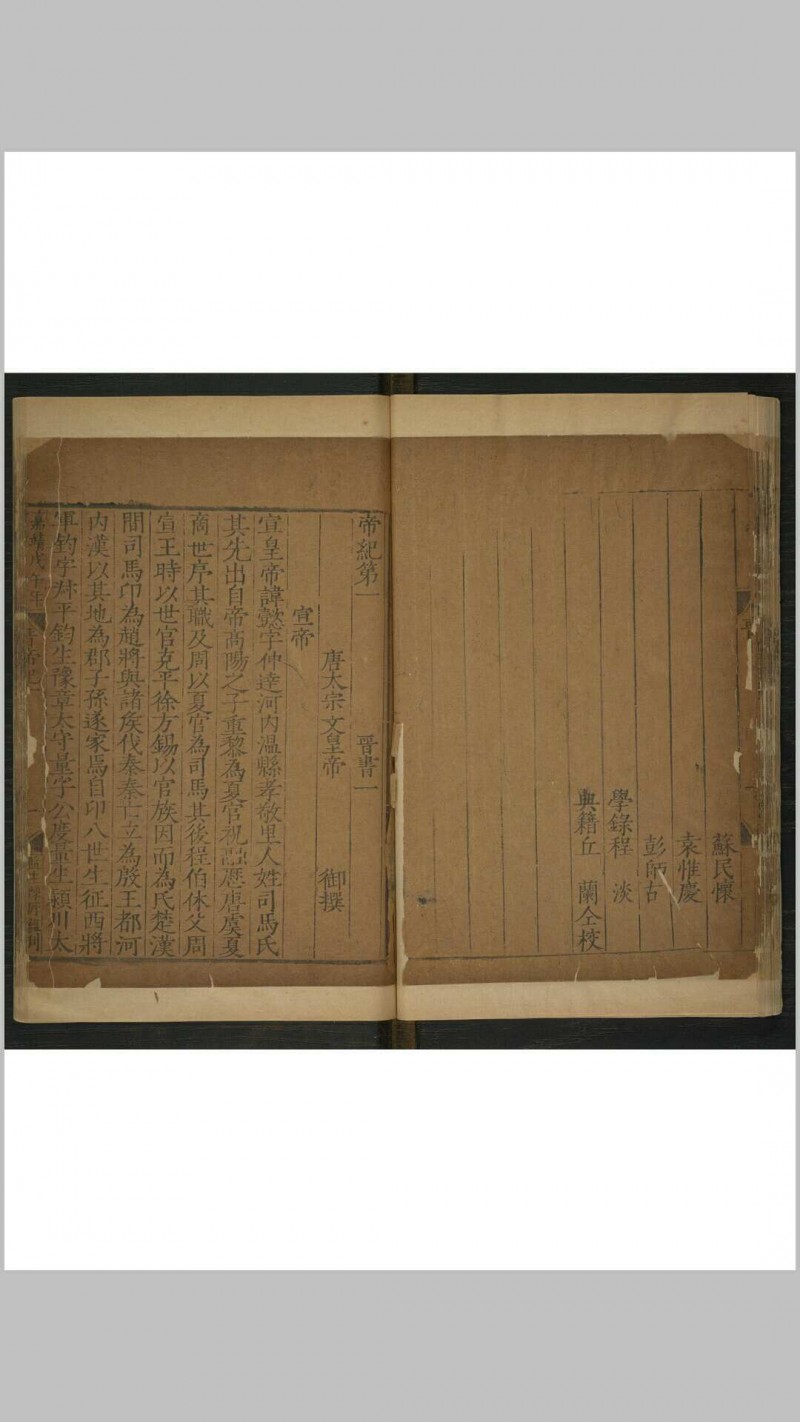 蘇民懷
袁惟慶
彭師古
學錄程　淡
典籍丘　蘭仝校
帝紀第一　晉書一
唐太宗文皇帝　御撰
宣帝
宣皇帝諱懿字仲達河内溫縣孝敬里人姓司馬氏
其先出自帝高陽之子重黎為夏官祝融歷唐虞夏
商世序其職及周以夏官為司馬其後程伯休父周
宣王時以世官克平徐方錫以官族因而為氏楚漢
間司馬卬為趙將與諸侯伐秦秦亡立為殷王都河
内漢以其地為郡子孫遂家焉自卬八世生征西將
軍鈞字叔平鈞生豫章太守量字公慶量生潁川太
嘉靖戊午年